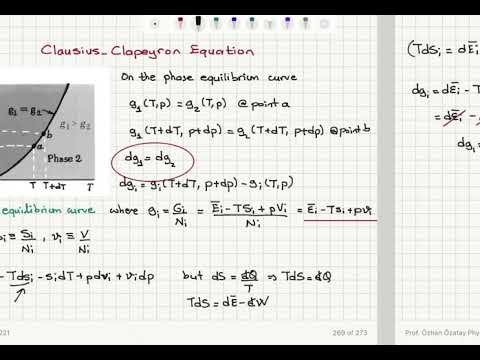 Clausius-Clapeyron Equation
On the phase equilibrium curve
g₁(T,p) = g₂(T,p) @ point a
g₁(T+dT, p+dp) = g₂(T+dT, p+dp) @ point b
dg₁ = dg₂
dgᵢ = gᵢ(T+dT, p+dp) - gᵢ(T,p)
g₁ = g₂
g₁ > g₂
b
a
Phase 2
T T+dT T
equilibrium curve where gᵢ = Gᵢ/Nᵢ = (E̅ᵢ - TSᵢ + pVᵢ)/Nᵢ = e̅ᵢ - Tsᵢ + pvᵢ
sᵢ ≡ Sᵢ/Nᵢ , vᵢ ≡ V/Nᵢ
- Tdsᵢ - sᵢdT + pdvᵢ + vᵢdp
but dS = đQ/T ⇒ TdS = đQ
TdS = dE̅ - đW
(TdSᵢ = dE̅ᵢ
dgᵢ = dE̅ᵢ -
= dE̅ᵢ -
dgᵢ =
221
269 of 273
Prof. Özhan Özatay Phy